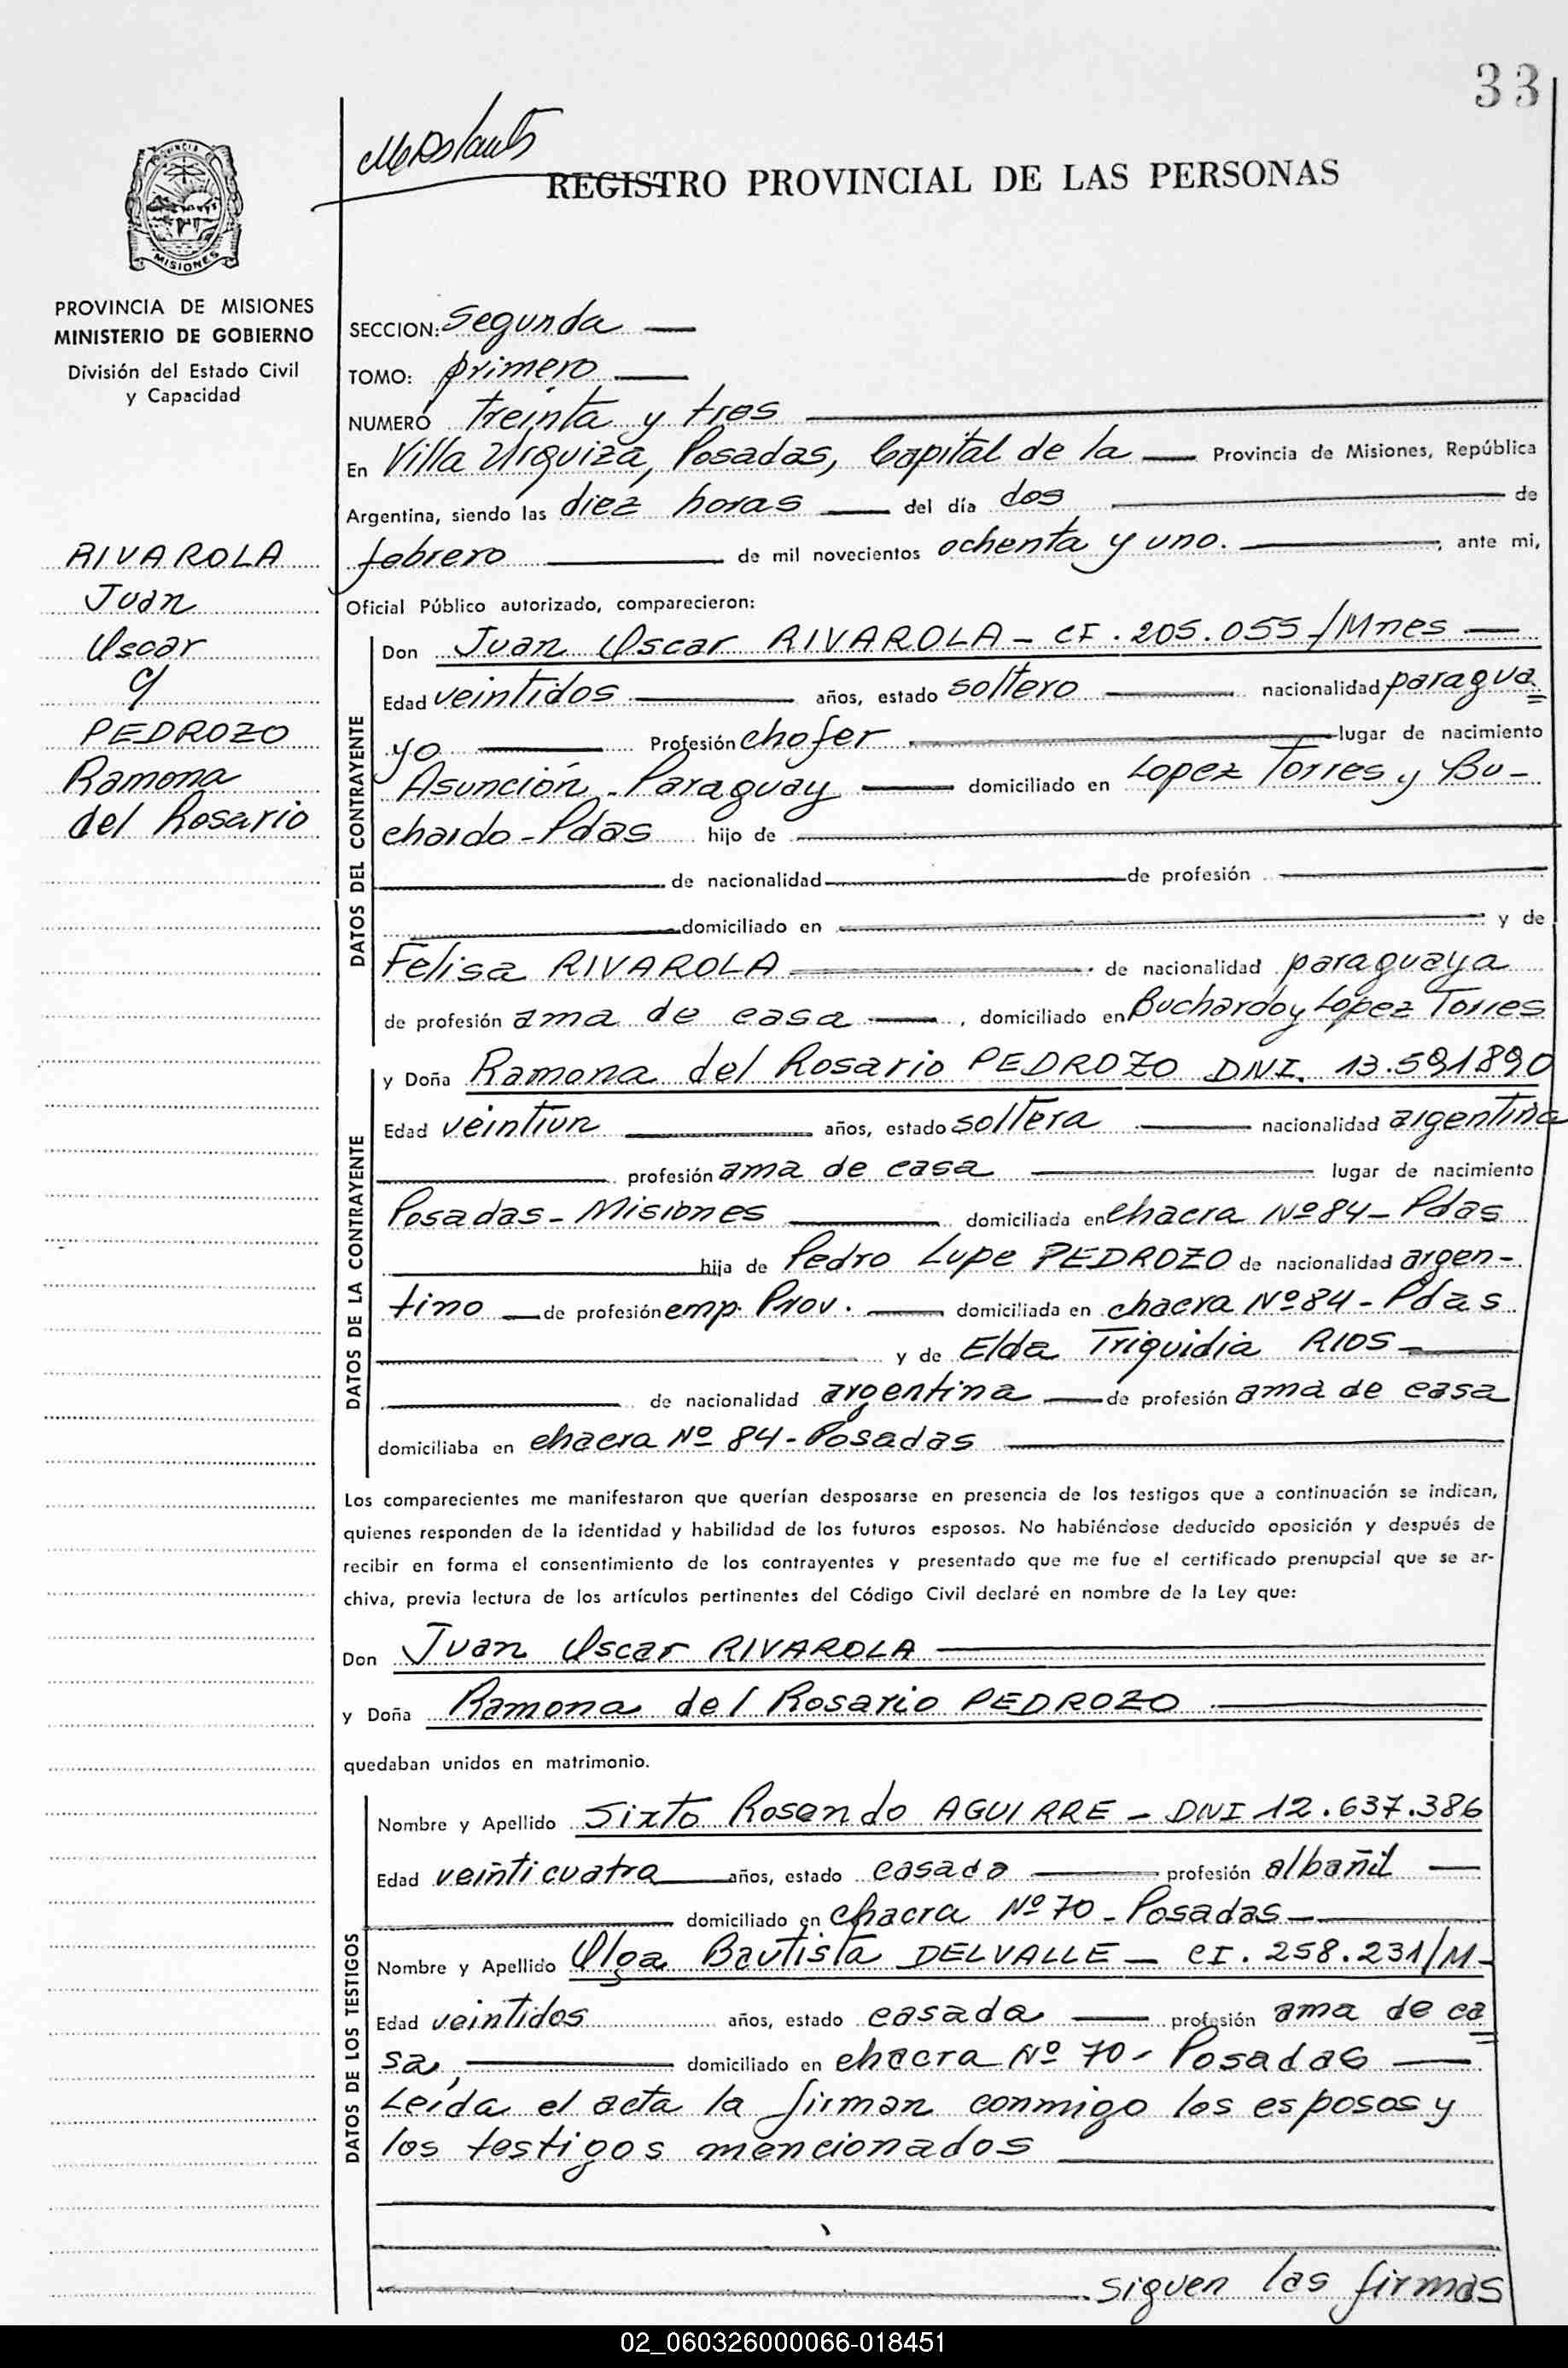 33
REGISTRO PROVINCIAL DE LAS PERSONAS
PROVINCIA
MISIONES
PROVINCIA DE MISIONES
MINISTERIO DE GOBIERNO
División del Estado Civil
y Capacidad
RIVAROLA
Juan
Oscar
PEDROZO
Ramona
del Rosario
SECCION: Segunda
TOMO: primero
NUMERO treinta y tres
En Villa Urquiza, Posadas, Capital de la Provincia de Misiones, República
Argentina, siendo las diez horas del día dos de
febrero de mil novecientos ochenta y uno. , ante mi,
Oficial Público autorizado, comparecieron:
DATOS DEL CONTRAYENTE
Don Juan Oscar RIVAROLA - CI. 205.055/Mnes
Edad veintidos años, estado soltero nacionalidad paragua=
yo Profesión chofer lugar de nacimiento
Asunción - Paraguay domiciliado en Lopez Torres y Bu-
chardo - Pdas hijo de
de nacionalidad de profesión
domiciliado en y de
Felisa RIVAROLA de nacionalidad paraguaya
de profesión ama de casa , domiciliado en Buchardo y Lopez Torres
DATOS DE LA CONTRAYENTE
y Doña Ramona del Rosario PEDROZO DNI. 13.591890
Edad veintiun años, estado soltera nacionalidad argentina
profesión ama de casa lugar de nacimiento
Posadas - Misiones domiciliada en chacra Nº 84 - Pdas
hija de Pedro Lupe PEDROZO de nacionalidad argen-
tino de profesión emp. Prov. domiciliada en chacra Nº 84 - Pdas
y de Elda Triquidia RIOS
de nacionalidad argentina de profesión ama de casa
domiciliaba en chacra Nº 84 - Posadas
Los comparecientes me manifestaron que querían desposarse en presencia de los testigos que a continuación se indican,
quienes responden de la identidad y habilidad de los futuros esposos. No habiéndose deducido oposición y después de
recibir en forma el consentimiento de los contrayentes y presentado que me fue el certificado prenupcial que se ar-
chiva, previa lectura de los artículos pertinentes del Código Civil declaré en nombre de la Ley que:
Don Juan Oscar RIVAROLA
y Doña Ramona del Rosario PEDROZO
quedaban unidos en matrimonio.
DATOS DE LOS TESTIGOS
Nombre y Apellido Sixto Rosendo AGUIRRE - DNI 12.637.386
Edad veinticuatro años, estado casado profesión albañil
domiciliado en chacra Nº 70 - Posadas
Nombre y Apellido Olga Bautista DELVALLE - CI. 258.231/M-
Edad veintidos años, estado casada profesión ama de ca=
sa, domiciliado en chacra Nº 70 - Posadas
Leída el acta la firman conmigo los esposos y
los testigos mencionados
siguen las firmas
02_060326000066-018451